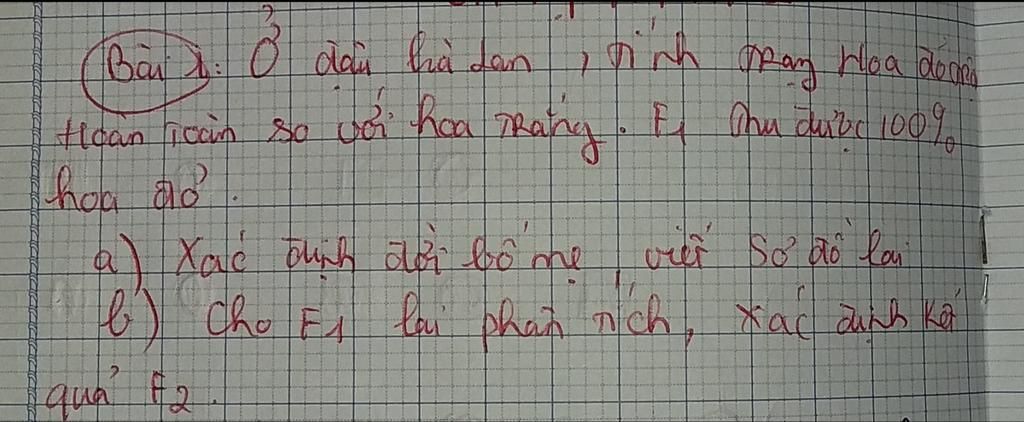 Bài 1: Ở đậu hà dan, tính trạng Hoa đỏ
Hoàn toàn so với hoa trắng. F1 thu được 100%
hoa đỏ.
a) Xác định đời bố mẹ, viết sơ đồ lai
b) Cho F1 lai phân tích, xác định kết
quả F2.